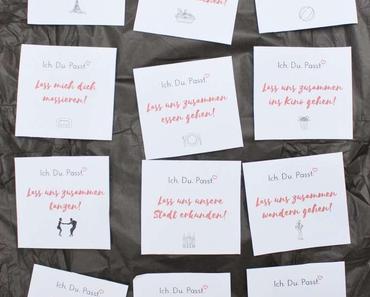 Ich. Du. Passt.
Lass mich dich
massieren!
Ich. Du. Passt.
Lass uns zusammen
essen gehen!
Ich. Du. Passt.
Lass uns zusammen
ins Kino gehen!
Ich. Du. Passt.
Lass uns zusammen
tanzen!
Ich. Du. Passt.
Lass uns unsere
Stadt erkunden!
Ich. Du. Passt.
Lass uns zusammen
wandern gehen!
Ich. Du. Passt.
Ich. Du. Passt.
Ich. Du. Passt.